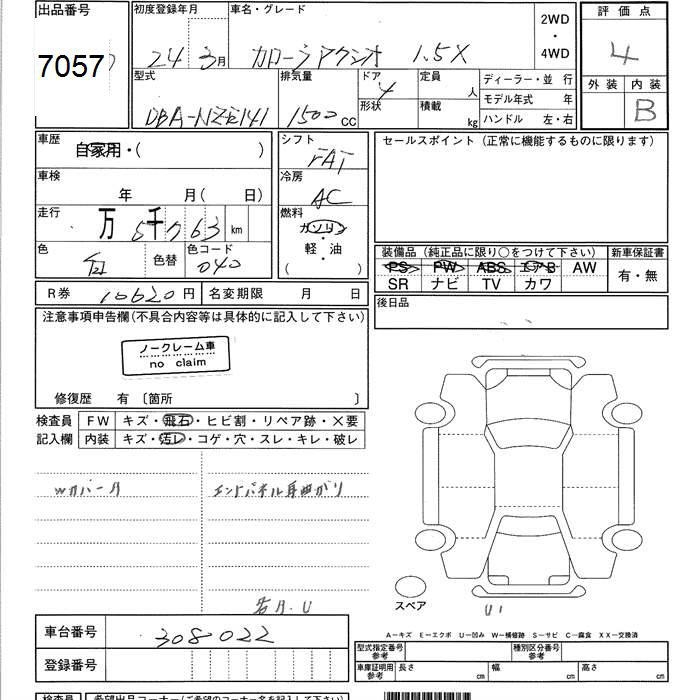 出品番号 初度登録年月 車名・グレード 2WD・4WD 評価点
7057 24年 3月 カローラアクシオ 1.5X 4
型式 排気量 ドア 定員 人 ディーラー・並 行 外装 内装
DBA-NZE141 1500cc 4 形状 積載 kg モデル年式 年 B
ハンドル 左・右
車歴 自家用・( ) シフト FAT セールスポイント (正常に機能するものに限ります)
車検 年 月( 日) 冷房 AC
走行 万 5千763 km 燃料 ガソリン・軽・油 ( )
色 白 色替 色コード 040
装備品 (純正品に限り○をつけて下さい) 新車保証書
PS PW ABS エアB AW 有・無
SR ナビ TV カワ
R券 10620円 名変期限 月 日 後日品
注意事項申告欄(不具合内容等は具体的に記入して下さい)
ノークレーム車
no claim
修復歴 有 〔箇所 〕
検査員 FW キズ・飛石・ヒビ割・リペア跡・×要
記入欄 内装 キズ・汚レ・コゲ・穴・スレ・キレ・破レ
Wカバー
エンドパネル 曲がり
U
スペア
U1
A-キズ E-エクボ U-凹み W-補修跡 S-サビ C-腐食 XX-交換済
車台番号 308-022
型式指定番号 参考 種別区分番号 参考
登録番号 車庫証明用 参考 長さ cm 幅 cm 高さ cm
検査員 希望出品コーナー(ご希望のコーナー名を記入下さい)